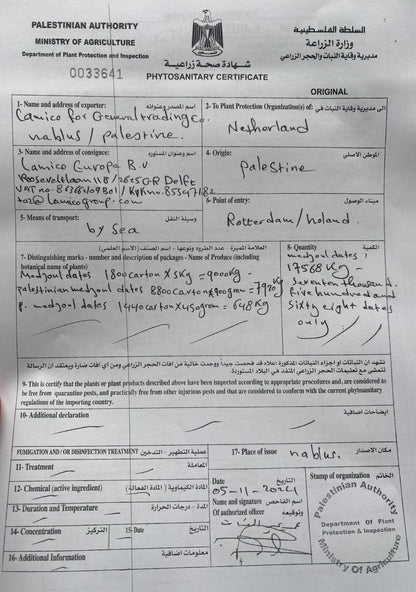 PALESTINIAN AUTHORITY
السلطة الفلسطينية
MINISTRY OF AGRICULTURE
وزارة الزراعة
Department of Plant Protection and Inspection
مديرية وقاية النبات والحجر الزراعي
0033641
شهادة صحة زراعية
PHYTOSANITARY CERTIFICATE
ORIGINAL
1- Name and address of exporter:
اسم المصدر وعنوانه
Lamico for General trading Co.
nablus / palestine.
2- To Plant Protection Organization(s) of:
الى مديرية وقاية النبات في
Netherland
3- Name and address of consignee:
اسم وعنوان المستورد
Lamico Europa B.V
Delft
4- Origin:
الموطن الاصلي
Palestine
5- Means of transport:
وسيلة النقل
by Sea
6- Point of entry:
ميناء الوصول
Rotterdam/holand.
7- Distinguishing marks - number and description of packages - Name of Produce (including botanical name of plants)
Medjoul dates 1800 carton x 5Kg = 9000Kg
palestinian medjoul dates 8800 carton x 900gram = 7920Kg
p. medjoul dates 1440 carton x 450gram = 648Kg
8- Quantity
الكمية
medjoul dates,
17568 Kg
Seventen thousand
five hundred and
sixty eight dates
only
نشهد ان النباتات او اجزاء النباتات المذكورة اعلاه قد فحصت جيداً ووجدت خالية من آفات الحجر الزراعي ومن أي آفات ضارة ويعتقد أن الرسالة
تتمشى مع تعليمات الحجر الزراعي المتبعة في البلاد المستوردة.
9- This is certify that the plants or plant products described above have been inspected according to appropriate procedures and, are considered
to be free from quarantine pests, and practically free from other injurious pests and that are considered to conform with the current phytosanitary
regulations of the importing country.
10- Additional declaration
ايضاحات اضافية
FUMIGATION AND / OR DISINFECTION TREATMENT
عملية التطهير - التدخين
17- Place of issue
nablus.
مكان الاصدار
11- Treatment
المعاملة
12- Chemical (active ingredient)
المادة الكيماوية (المادة الفعالة)
13- Duration and Temperature
المدة - درجات الحرارة
14- Concentration
التركيز
15- Date
التاريخ
16- Additional Information
معلومات اضافية
Date
التاريخ
Name and signature
اسم الفاحص
Of authorized officer
وتوقيعه
Stamp of organization
الختم
Palestinian Authority
Department Of Plant
Protection & Inspection
Ministry Of Agriculture